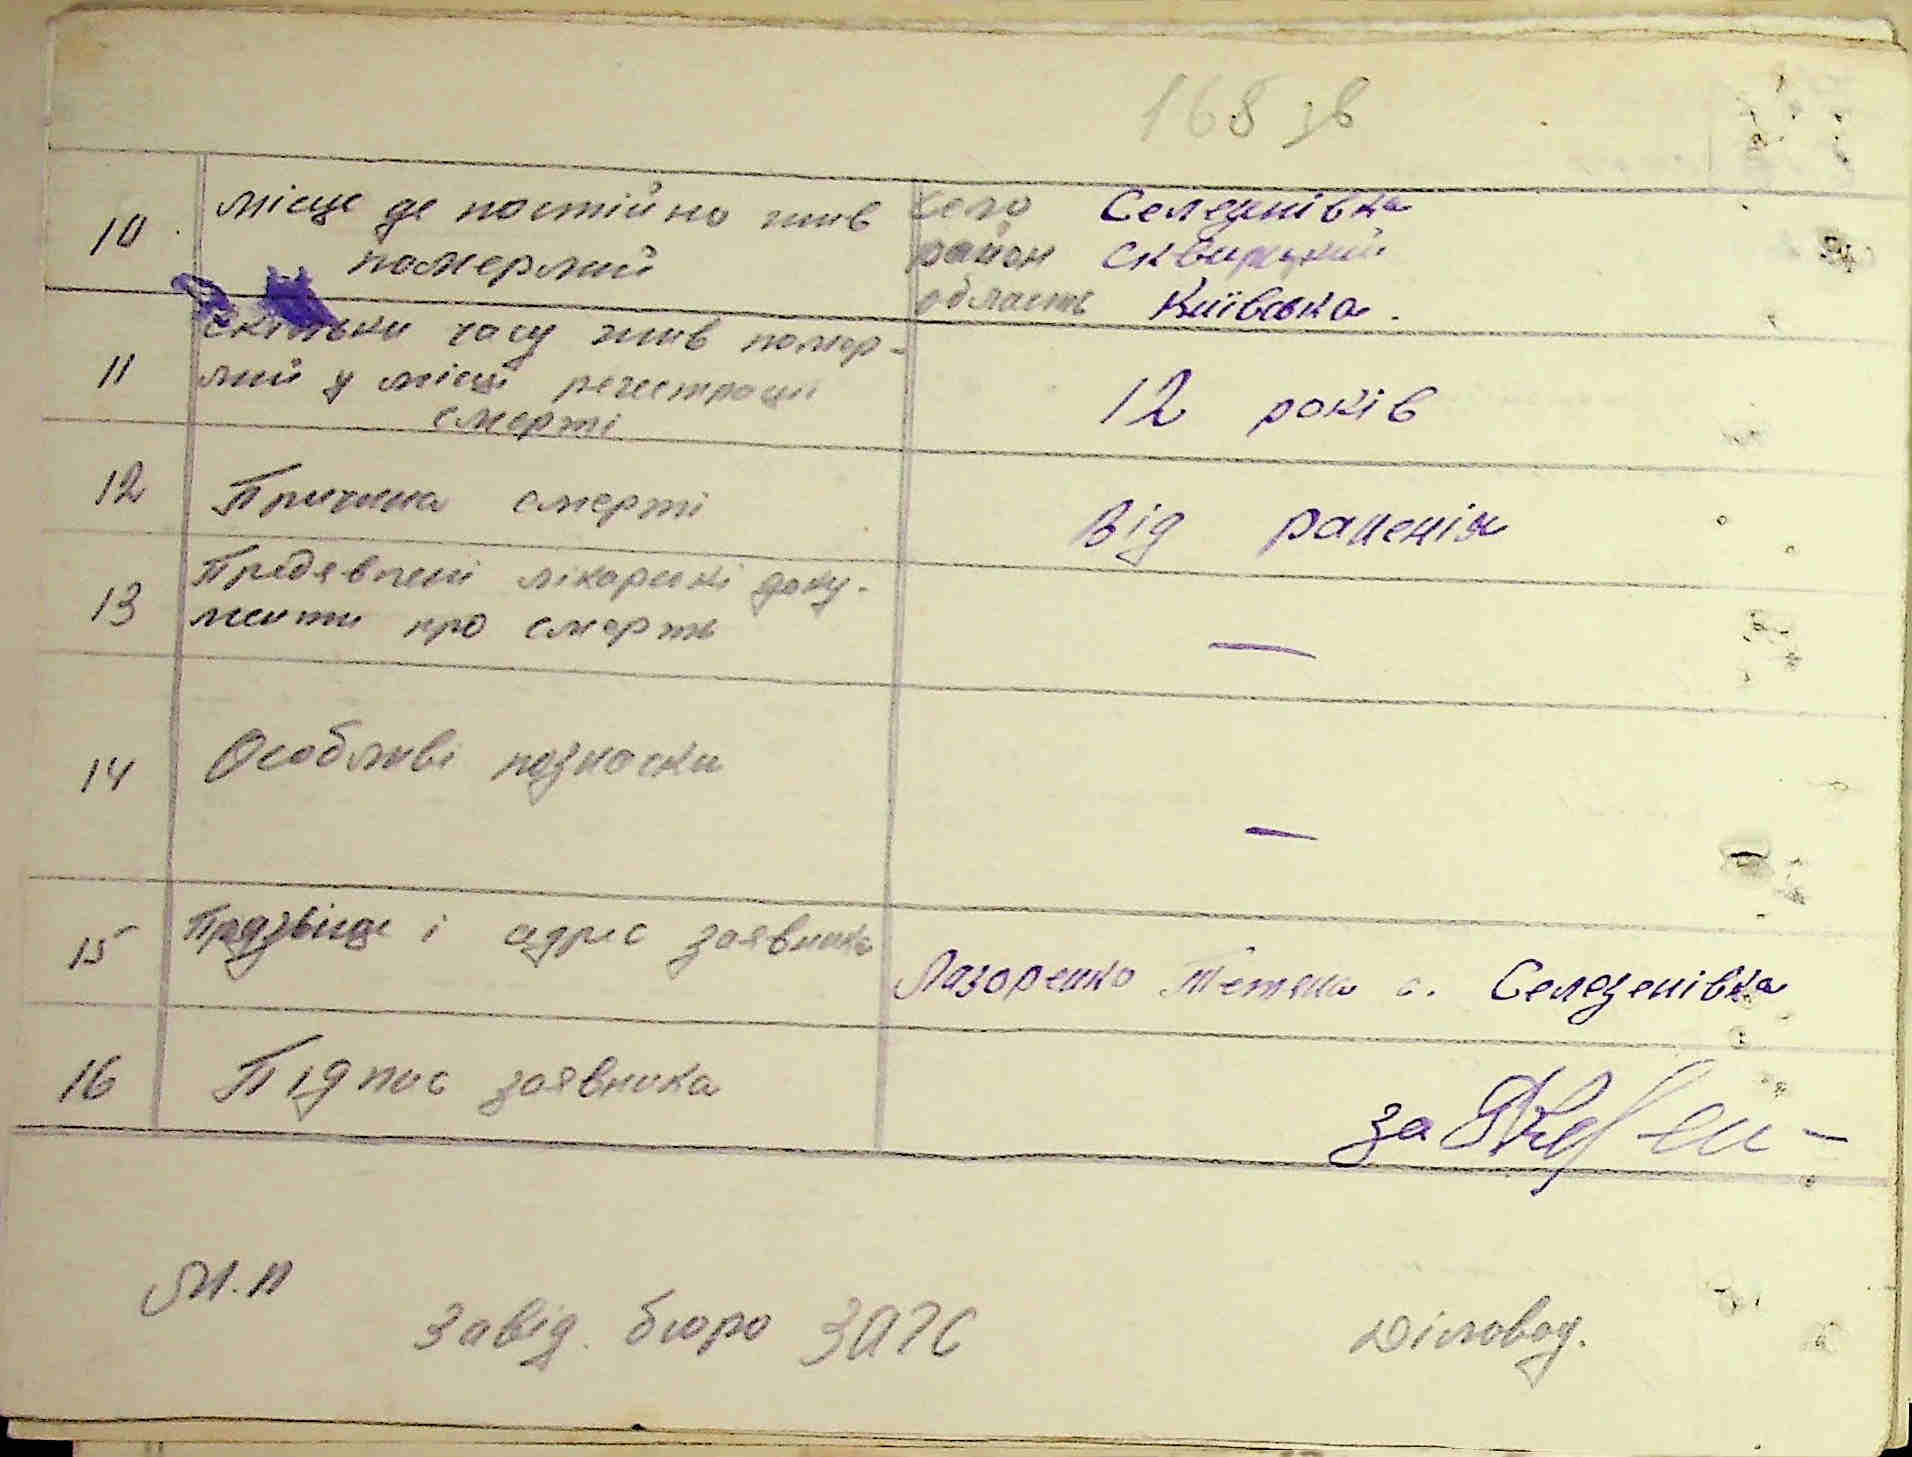 168 зв
10 місце де постійно жив село Селезнівка
померлий район Сквирський
область Київська.
скільки часу жив помер-
11 лий у місці регестрації 12 років
смерті
12 Причина смерті від раненія
Предявлені лікарскі доку-
13 менти про смерть —
14 Особливі познаски —
15 Прізвіще і адрес заявника Лазоренко Тетяна с. Селезенівка
16 Підпис заявника за
М.П
Завід. бюро ЗАГС Діловод.